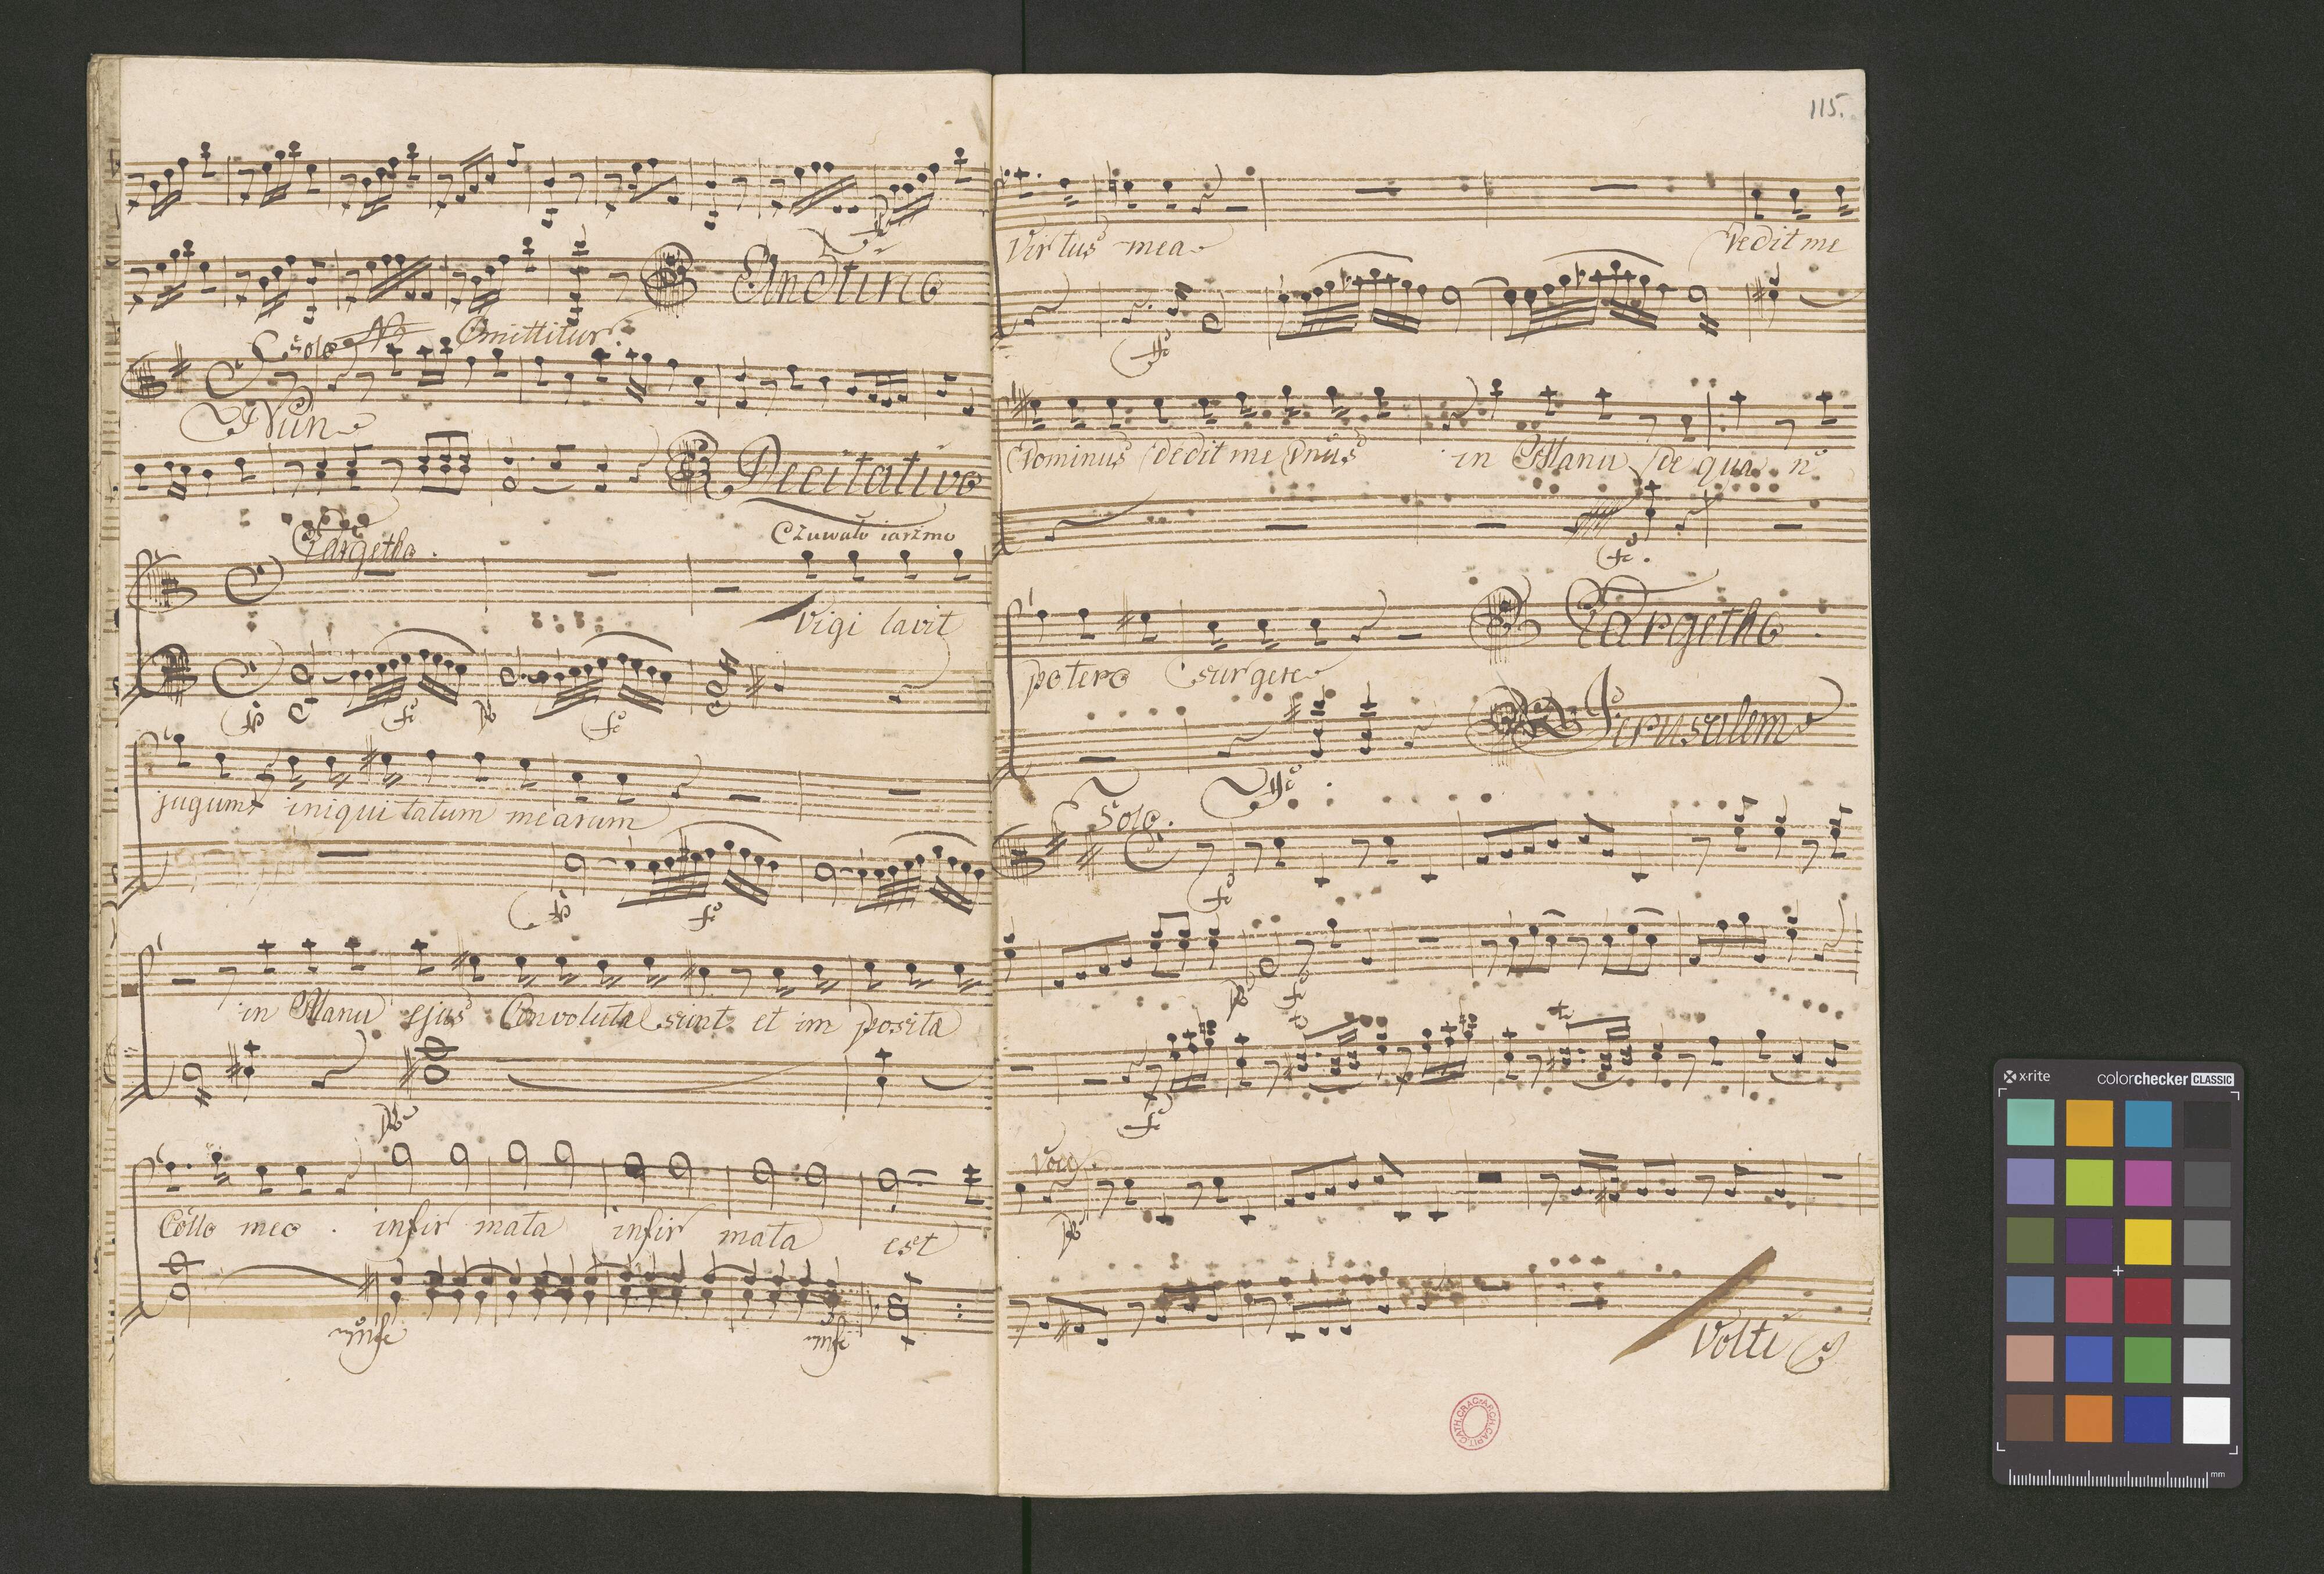 Andtino
Solo NB Omittitur.
Nun
Recitativo
Largetho.
Czuwało iarzmo
Vigi lavit
jugum iniqui tatum mearum
in Manu ejus Convolutae sunt et im posita
Collo meo. infir mata infir mata est
rinfc rinfc
115.
Virtus mea
Dedit me
Dominus dedit me Dnus in Manu de qua n
fc.
potero surgere
Largetho
Jerusalem
Solo.
Voce.
Volti
ARCH. CAPIT. CATH. CRAC.
x-rite
colorchecker CLASSIC
mm